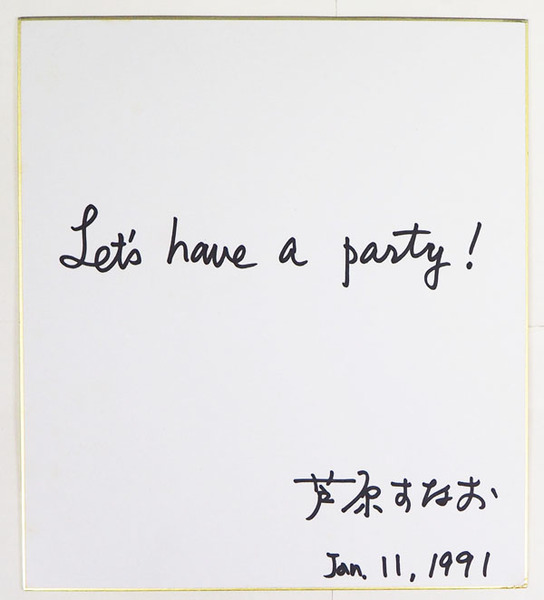 Let's have a party!
芦原すなお
Jan. 11, 1991